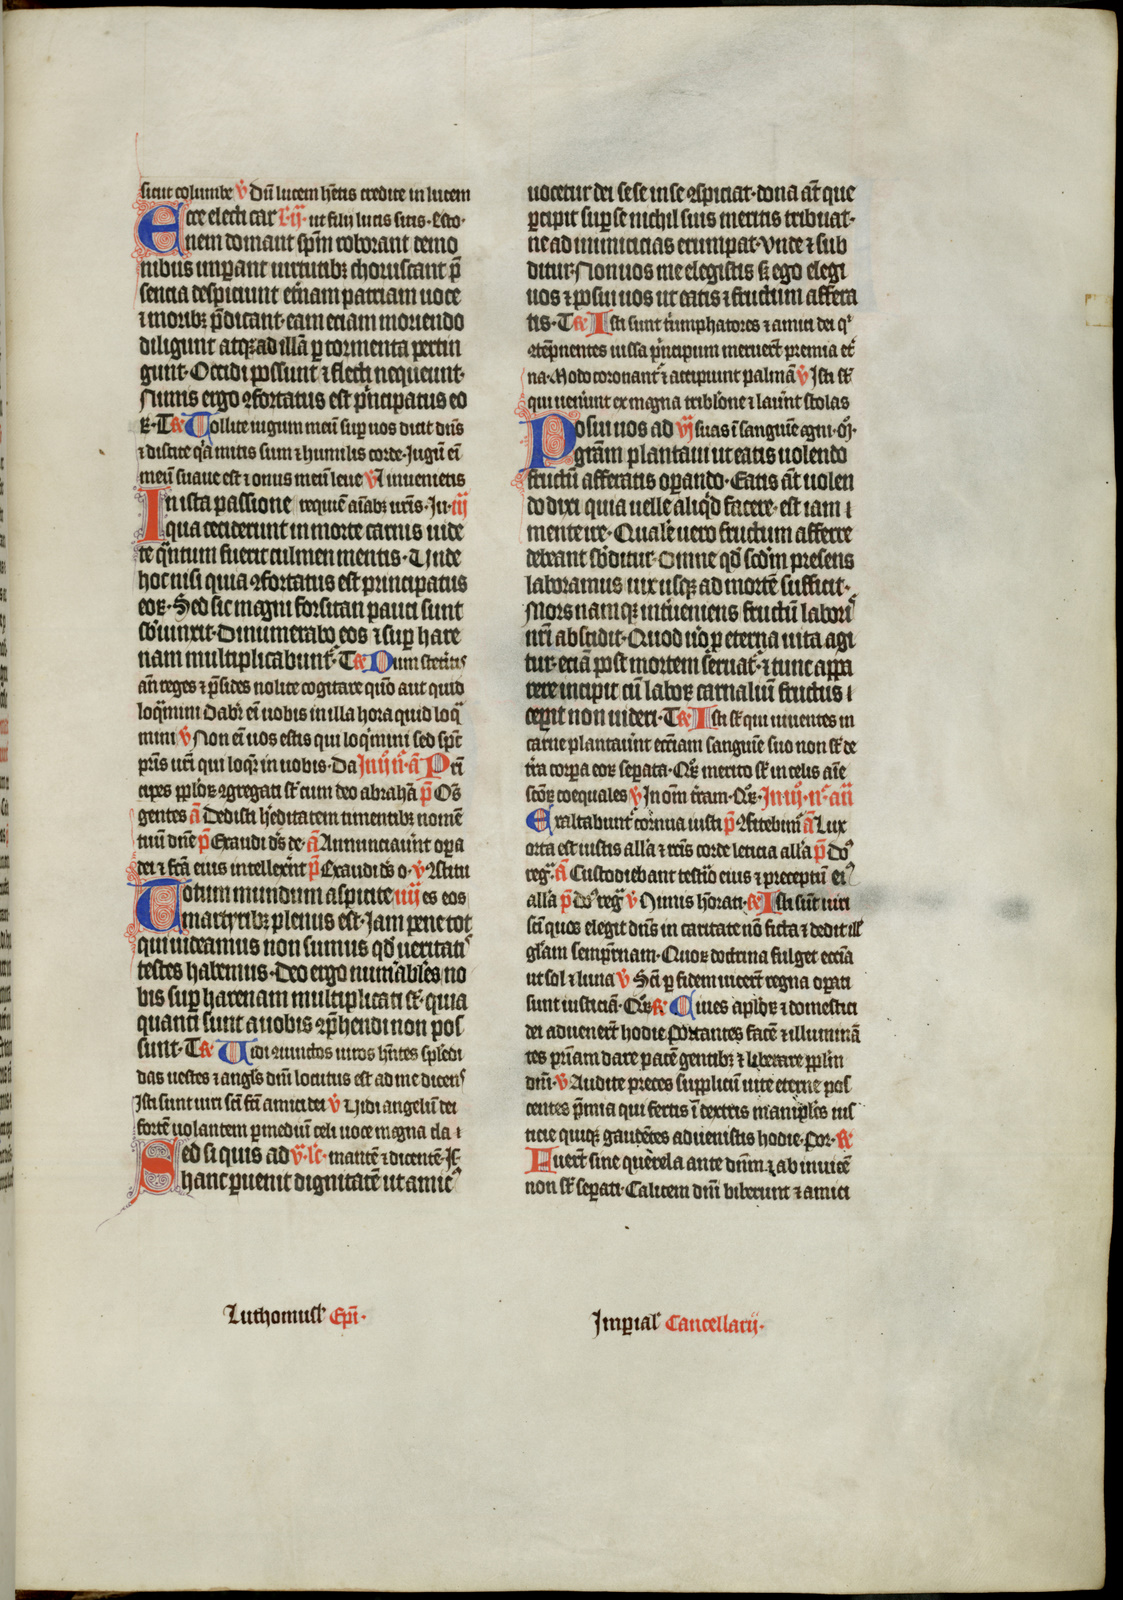 sicut columbe v̄ Dū lucem hētis credite in lucem
Ecce electi car l. ij. ut filii lucis sitis. Esto.
nem domant spm̄ roborant demo
nibus imꝑant uirtutibꝫ choruscant p̄
sencia despiciunt et̄nam patriam uoce
⁊ moribꝫ p̄dicant. eam eciam moriendo
diligunt atqꝫ ad illā ꝑ tormenta pertin
gunt. Occidi possunt ⁊ flecti nequeunt.
Nimis ergo ꝯfortatus est pͥncipatus eo
ꝝ. T R̄ Tollite iugum meū suꝑ uos dicit dn̄s
⁊ discite qͣ mitis sum ⁊ humilis corde. Jugū ei̅
meū suaue est ⁊ onus meū leue v̄ Et inuenietis
In ista passione requiē aīabꝫ ur̄is. Ju. iij
qua ceciderunt in morte carnis uide
te qͣntum fuerit culmen mentis. Unde
hoc nisi quia ꝯfortatus est principatus
eoꝝ. Sed sic magni forsitan pauci sunt
sb̄iunxit. Dinumerabo eos ⁊ suꝑ hare
nam multiplicabunt᷑. T R̄ Dum steritis
an̄ reges ⁊ p̄sides nolite cogitare quō aut quid
loqͣmini Dabit᷑ eī uobis in illa hora quid loqͣ
mini v̄ Non eī uos estis qui loqͥmini sed spc̄
pr̄is ur̄i qui loqͥt᷑ in uobis. Da Jn ij n̄. ā Prī
cipes ppl̄oꝝ ꝯgregati st̄ cum deo abrahā p̄ Om̄s
gentes ā Dedisti h̄editatem timentibꝫ nomē
tuū dn̄e p̄ Exaudi ds̄ de. ā Annunciauer̄t oꝑa
dei ⁊ fcā eius intellexer̄t p̄ Exaudi ds̄ o. v̄ ꝯstitu
Totum mundum aspicite iiij es eos
martyribꝫ plenus est. Jam pene tot
qui uideamus non sumus qd̄ ueritatis
testes habemus. Deo ergo num̄ables no
bis suꝑ harenam multiplicati st̄. quia
quanti sunt a nobis ꝯp̄hendi non pos
sunt. T R̄ Uidi ꝯiunctos uiros hn̄tes splēdi
das uestes ⁊ angl̄s dn̄i locutus est ad me dicens
Isti sunt uiri sc̄i fc̄i amici dei v̄ Uidi angelū dei
fortē uolantem ꝑ mediū celi uoce magna cla ⁊
Sed si quis ad v. lc̄. mantē ⁊ dicentē. Js̄
hanc ꝑuenit dignitatē ut amicꝰ
uocetur dei sese in se ꝯspiciat. dona aūt que
ꝑcipit suꝑ se nichil suis meritis tribuat.
ne ad inimicicias erumpat. Vnde ⁊ sub
ditur. Non uos me elegistis sꝫ ego elegi
uos ⁊ posui uos ut eatis ⁊ fructum affera
tis. T R̄ Isti sunt tiumphatores ⁊ amici dei qͥ
ꝯtēpnentes iussa pͥncipum meruer̄t premia et̄
na. Modo coronant᷑ ⁊ accipiunt palmā v̄ Isti st̄
qui uenerūt ex magna tribl̄one ⁊ lauer̄t stolas
Posui uos ad vj suas ī sanguīe agni. Oj.
grām plantaui ut eatis uolendo
fructū afferatis oꝑando. Eatis aūt uolen
do dixi quia uelle aliqͥd facere. est iam ī
mente ire. Quale uero fructum afferre
debeant sb̄ditur. Omne qd̄ scd̄m presens
laboramus uix usqꝫ ad mortē sufficit.
Mors namqꝫ int̄ueniens fructū laboris
nr̄i abscidit. Quod ūo ꝑ eterna uita agi
tur. eciā post mortem seruat᷑. ⁊ tunc appa
rere incipit cū laboꝝ carnaliū fructus ī
ceꝑit non uideri. T R̄ Isti st̄ qui uiuentes in
carne plantauer̄t ecc̄iam sanguīe suo non st̄ de
tr̄a corꝑa eoꝝ seꝑata. Qꝛ merito st̄ in celis aīe
scōꝝ coequales v̄ In om̄ tr̄am. Qꝛ. Jn iij. n̄. aū
Exaltabunt᷑ cornua iusti p̄ ꝯfitebim᷑ ā Lux
orta est iustis all̄a ⁊ rc̄is corde leticia all̄a p̄ Do᷒
reg᷑. ā Custodiebant testīo eius ⁊ preceptū ei᷒
all̄a p̄ do᷒ reg᷑ v̄ Nimis honorati. R̄ Isti sūt uiri
sc̄i quos elegit dn̄s in caritate nō ficta ⁊ dedit ill̄
gl̄am sempit̄nam. Quoꝝ doctrina fulget ecc̄ia
ut sol ⁊ luna v̄ Sc̄i ꝑ fidem uicer̄t regna oꝑati
sunt iusticiā. Qꝝ R̄ Ciues apl̄oꝝ ⁊ domestici
dei aduener̄t hodie. portantes facē ⁊ illuminā
tes pr̄iam dare pacē gentibꝫ ⁊ liberare ppl̄m
dn̄i. v̄ Audite preces supplicū uite eterne pos
centes p̄mia qui fertis ī dextris maniplos ius
ticie quiqꝫ gaudētes aduenistis hodie. Por. R̄
Fuer̄t sine querela ante dn̄m. ⁊ ab inuicē
non st̄ seꝑati. Calicem dn̄i biberunt ⁊ amici
Luthomusl̄ Ep̄i.
Jmꝑial᷒ Cancellarij.